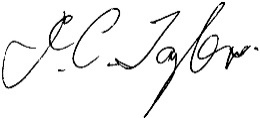 J. C. Taylor.